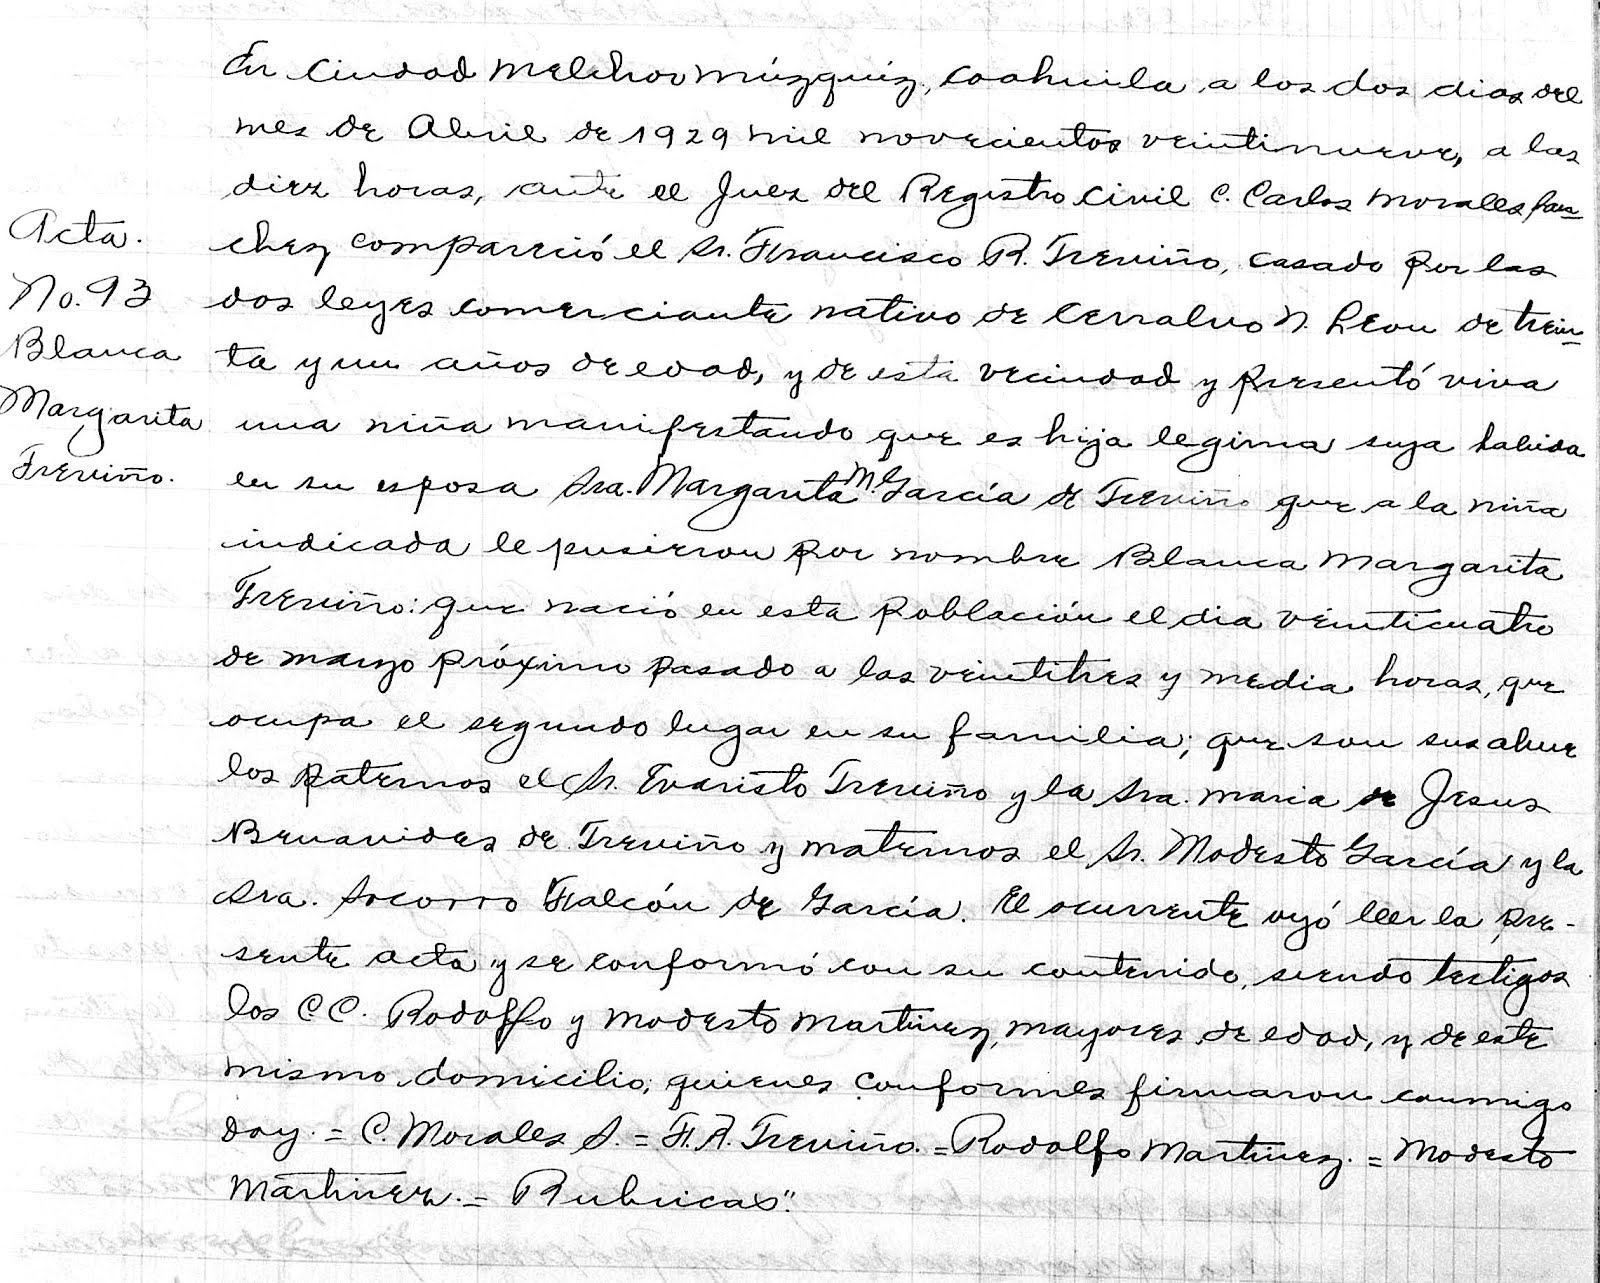 Acta.
No. 93
Blanca
Margarita
Treviño.
En Ciudad Melchor Múzquiz, Coahuila a los dos dias del
mes de Abril de 1929 mil novecientos veintinueve, a las
diez horas, ante el Juez del Registro Civil C. Carlos Morales San=
chez compareció el Sr. Francisco R. Treviño, casado por las
dos leyes comerciante nativo de Cerralvo N. Leon de trein=
ta y un años de edad, y de esta vecindad y presentó viva
una niña manifestando que es hija legima suya habida
en su esposa Sra. Margarita M. García de Treviño que a la niña
indicada le pusieron por nombre Blanca Margarita
Treviño: que nació en esta Población el dia veinticuatro
de marzo próximo pasado a las veintitres y media horas, que
ocupa el segundo lugar en su familia; que son sus abue
los paternos el Sr. Evaristo Treviño y la Sra. Maria de Jesus
Benavides de Treviño y maternos el Sr. Modesto García y la
Sra. Socorro Falcón de García. El ocurrente oyó leer la pre-
sente acta y se conformó con su contenido, siendo testigos
los CC. Rodolfo y Modesto Martinez, mayores de edad, y de este
mismo domicilio; quienes conformes firmaron conmigo
doy. = C. Morales S. = F. R. Treviño. = Rodolfo Martinez. = Modesto
Martinez. = Rubricas".